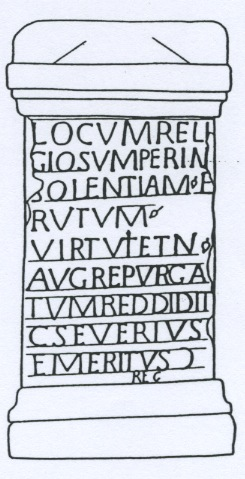 LOCVMRELI
GIOSVMPERIN
SOLENTIAM E
RVTVM
VIRTVTETN
AVGREPVRGA
TVMREDDIDIT
C SEVERIVS
EMERITVS Ɔ
REG